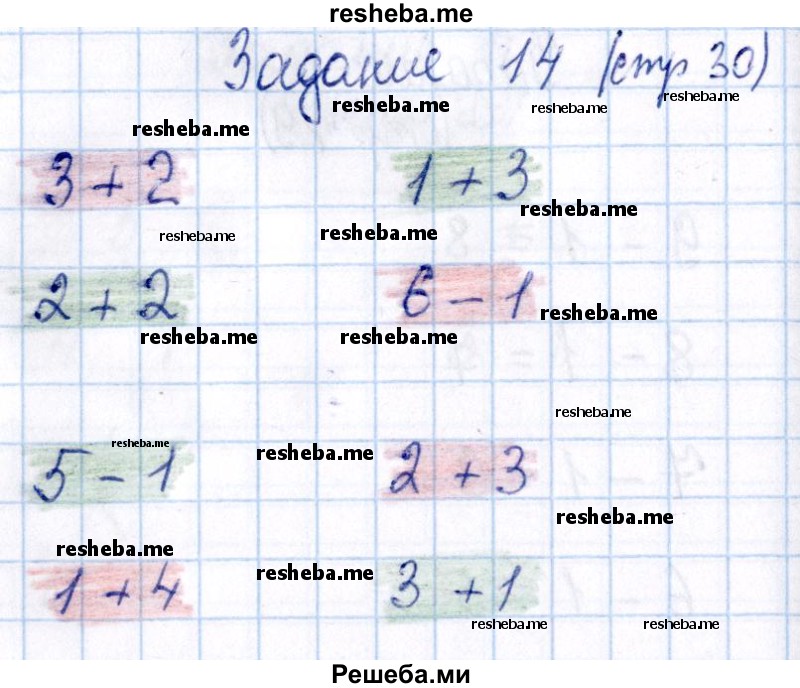 resheba.me
Задание 14 (стр 30)
resheba.me
resheba.me resheba.me
resheba.me
3 + 2 1 + 3
resheba.me
resheba.me resheba.me
2 + 2 6 - 1
resheba.me
resheba.me resheba.me
resheba.me
resheba.me resheba.me
5 - 1 2 + 3
resheba.me
resheba.me
resheba.me
1 + 4 3 + 1
resheba.me resheba.me
Решеба.ми